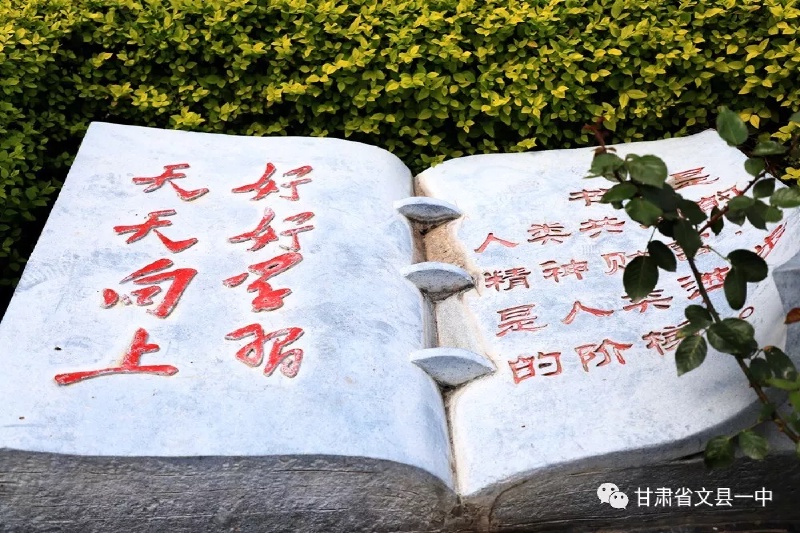 好好学习
天天向上
书是
人类共
精神财
是人类进步
的阶梯。
甘肃省文县一中